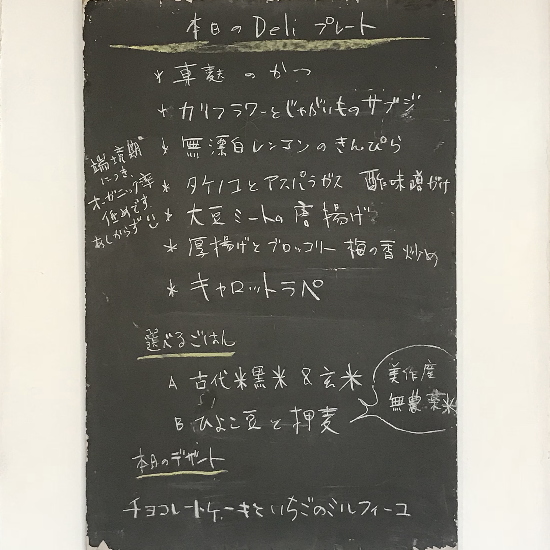 本日のDeli プレート
* 車麩のかつ
* カリフラワーとじゃがいものサブジ
* 無漂白レンコンのきんぴら
* タケノコとアスパラガス 酢味噌がけ
* 大豆ミートの唐揚げ
* 厚揚げとブロッコリー 梅の香炒め
* キャロットラペ
端境期
につき、
オーガニック率
低めです
あしからず
選べるごはん
A 古代米黒米&玄米
B ひよこ豆と押麦
美作産
無農薬米
本日のデザート
チョコレートケーキといちごのミルフィーユ